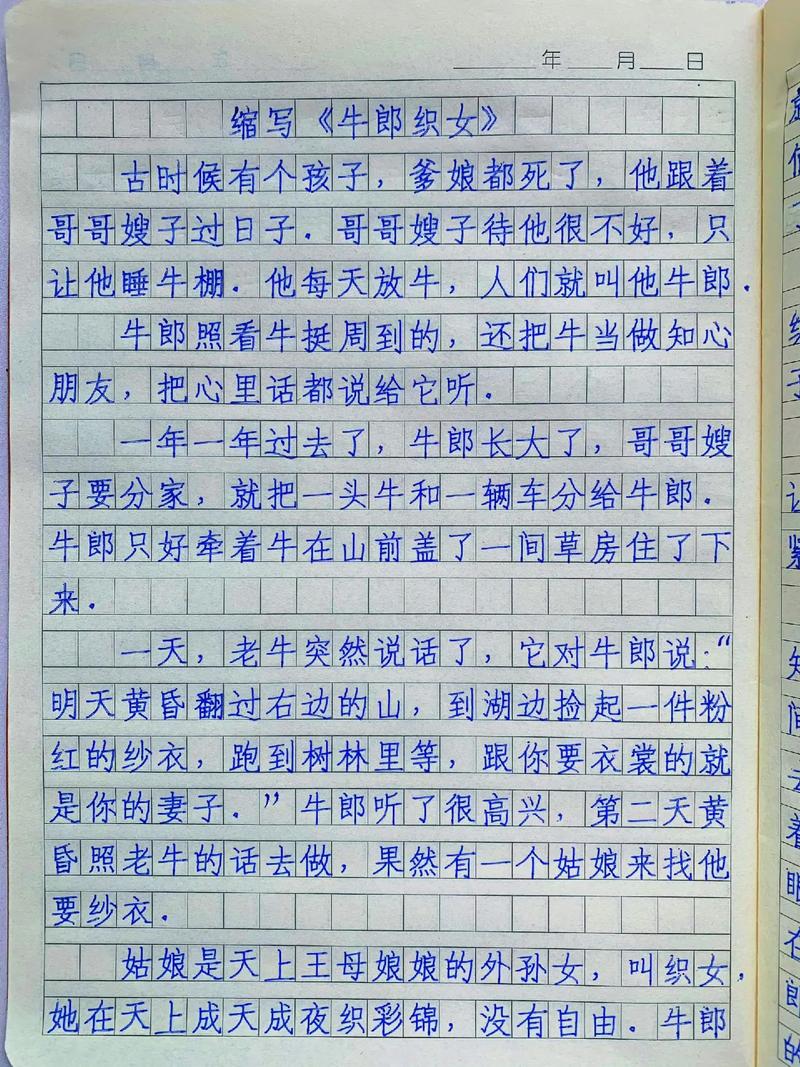 年 月 日
缩写《牛郎织女》
古时候有个孩子，爹娘都死了，他跟着
哥哥嫂子过日子．哥哥嫂子待他很不好，只
让他睡牛棚．他每天放牛，人们就叫他牛郎．
牛郎照看牛挺周到的，还把牛当做知心
朋友，把心里话都说给它听．
一年一年过去了，牛郎长大了，哥哥嫂
子要分家，就把一头牛和一辆车分给牛郎．
牛郎只好牵着牛在山前盖了一间草房住了下
来．
一天，老牛突然说话了，它对牛郎说：“
明天黄昏翻过右边的山，到湖边捡起一件粉
红的纱衣，跑到树林里等，跟你要衣裳的就
是你的妻子．”牛郎听了很高兴，第二天黄
昏照老牛的话去做，果然有一个姑娘来找他
要纱衣．
姑娘是天上王母娘娘的外孙女，叫织女，
她在天上成天成夜织彩锦，没有自由．牛郎